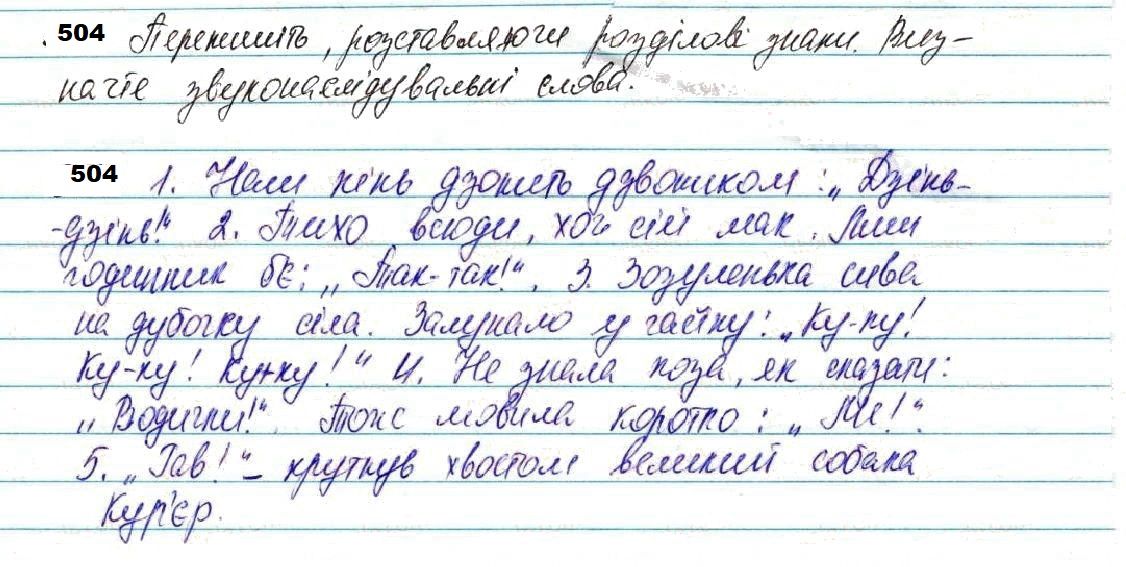 504 Перепишіть, розставляючи розділові знаки. Виз-
начте звуконаслідувальні слова.
504 1. Наш кінь дзонить дзвоником: „Дзінь-
-дзінь!" 2. Тихо всюди, хоч сій мак. Лиш
годинник бє: „Так-так!". 3. Зозуленька сива
на дубочку сіла. Залунало у гайку: „Ку-ку!
Ку-ку! Ку-ку!" 4. Не знала коза, як сказати:
„Водички!". Тож мовила коротко: „Ме!".
5. „Гав!" – крутнув хвостом великий собака
Кур'єр.